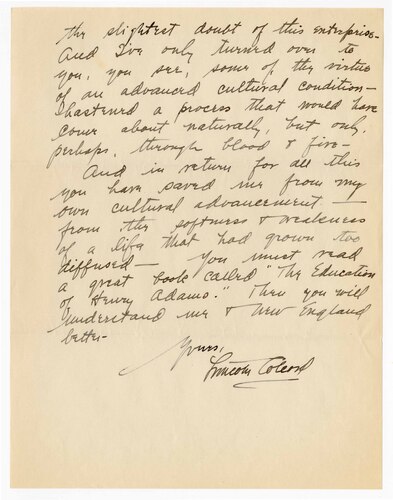 the slightest doubt of this enterprise-
And I've only turned over to
you, you see, some of the virtue
of an advanced cultural condition-
I hastened a process that would have
come about naturally, but only,
perhaps, through blood & fire-
And in return for all this
you have saved me from my
own cultural advancement -
from the softness & weakness
of a life that had grown too
diffused- You must read
a great book called "The Education
of Henry Adams." Then you will
understand me & New England
better-
Yours,
Lincoln Colcord